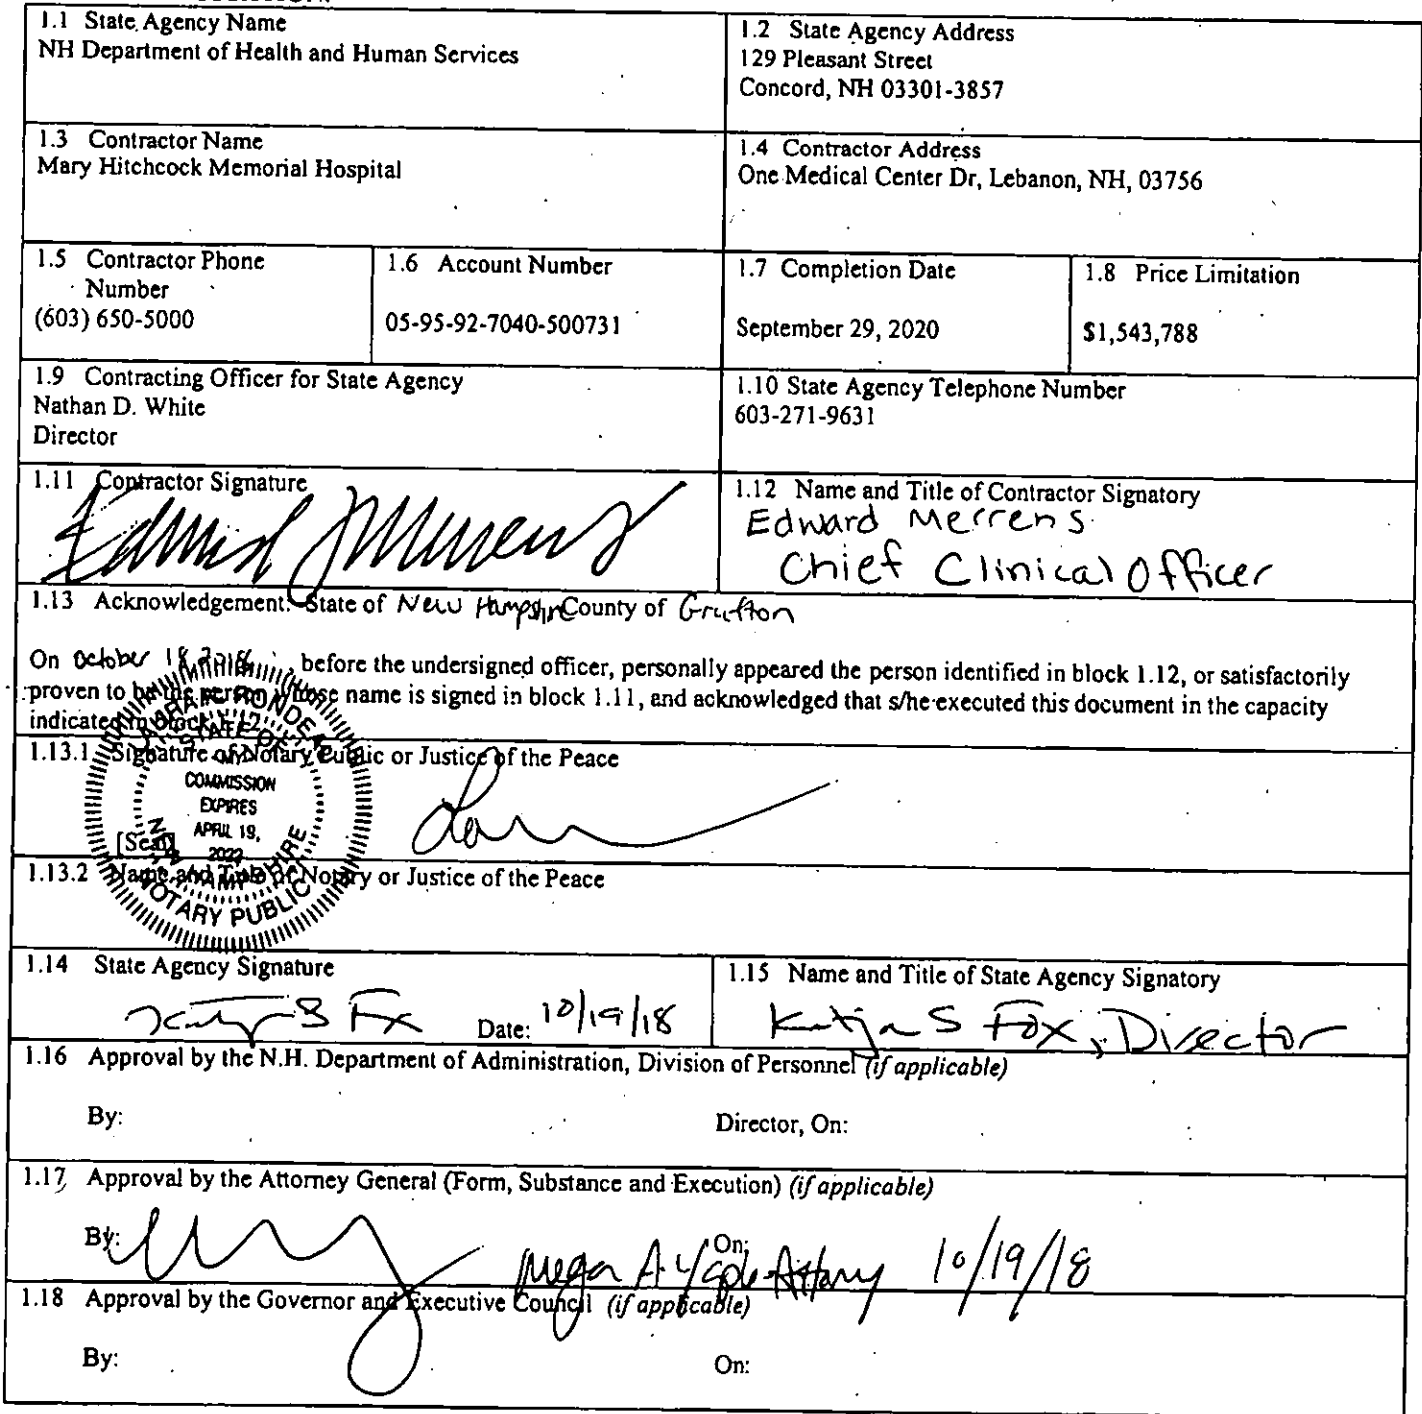 1.1 State Agency Name
NH Department of Health and Human Services
1.2 State Agency Address
129 Pleasant Street
Concord, NH 03301-3857
1.3 Contractor Name
Mary Hitchcock Memorial Hospital
1.4 Contractor Address
One Medical Center Dr, Lebanon, NH, 03756
1.5 Contractor Phone
Number
(603) 650-5000
1.6 Account Number
05-95-92-7040-500731
1.7 Completion Date
September 29, 2020
1.8 Price Limitation
$1,543,788
1.9 Contracting Officer for State Agency
Nathan D. White
Director
1.10 State Agency Telephone Number
603-271-9631
1.11 Contractor Signature
1.12 Name and Title of Contractor Signatory
Edward Merrens
Chief Clinical Officer
1.13 Acknowledgement: State of New Hampshire County of Grafton
On October 18, 2018, before the undersigned officer, personally appeared the person identified in block 1.12, or satisfactorily
proven to be the person whose name is signed in block 1.11, and acknowledged that s/he executed this document in the capacity
indicated in block 1.12.
1.13.1 Signature of Notary Public or Justice of the Peace
STATE OF
COMMISSION
EXPIRES
APRIL 19,
2022
NEW HAMPSHIRE
NOTARY PUBLIC
[Seal]
1.13.2 Name and Title of Notary or Justice of the Peace
1.14 State Agency Signature
Date: 10/19/18
1.15 Name and Title of State Agency Signatory
Katja S Fox, Director
1.16 Approval by the N.H. Department of Administration, Division of Personnel (if applicable)
By:
Director, On:
1.17 Approval by the Attorney General (Form, Substance and Execution) (if applicable)
By:
On:
10/19/18
1.18 Approval by the Governor and Executive Council (if applicable)
By:
On: